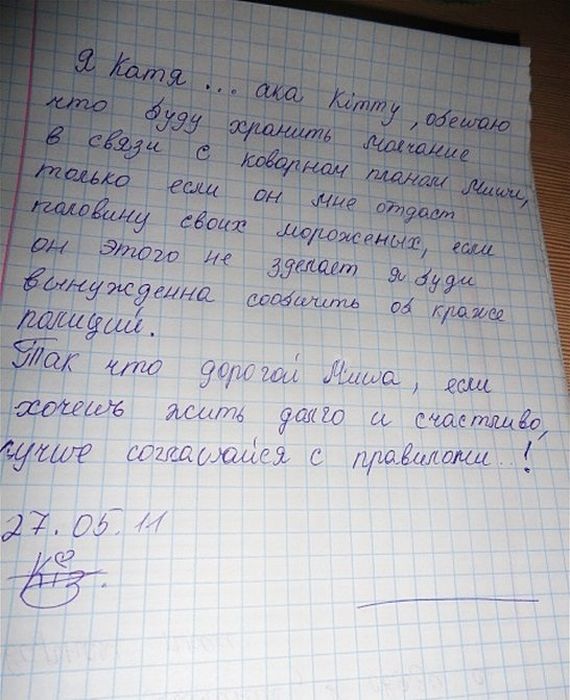 Я Катя ... ака Кітту, обещаю
что буду хранить молчание
в связи с коварном планом Миши,
только если он мне отдаст
половину своих мороженых, если
он этого не зделает я буди
вынужденна сообичить об краже
полиции.
Так что дорогой Миша, если
хочешь жить долго и счастливо,
лучше соглашайся с правилами..!
27.05.11